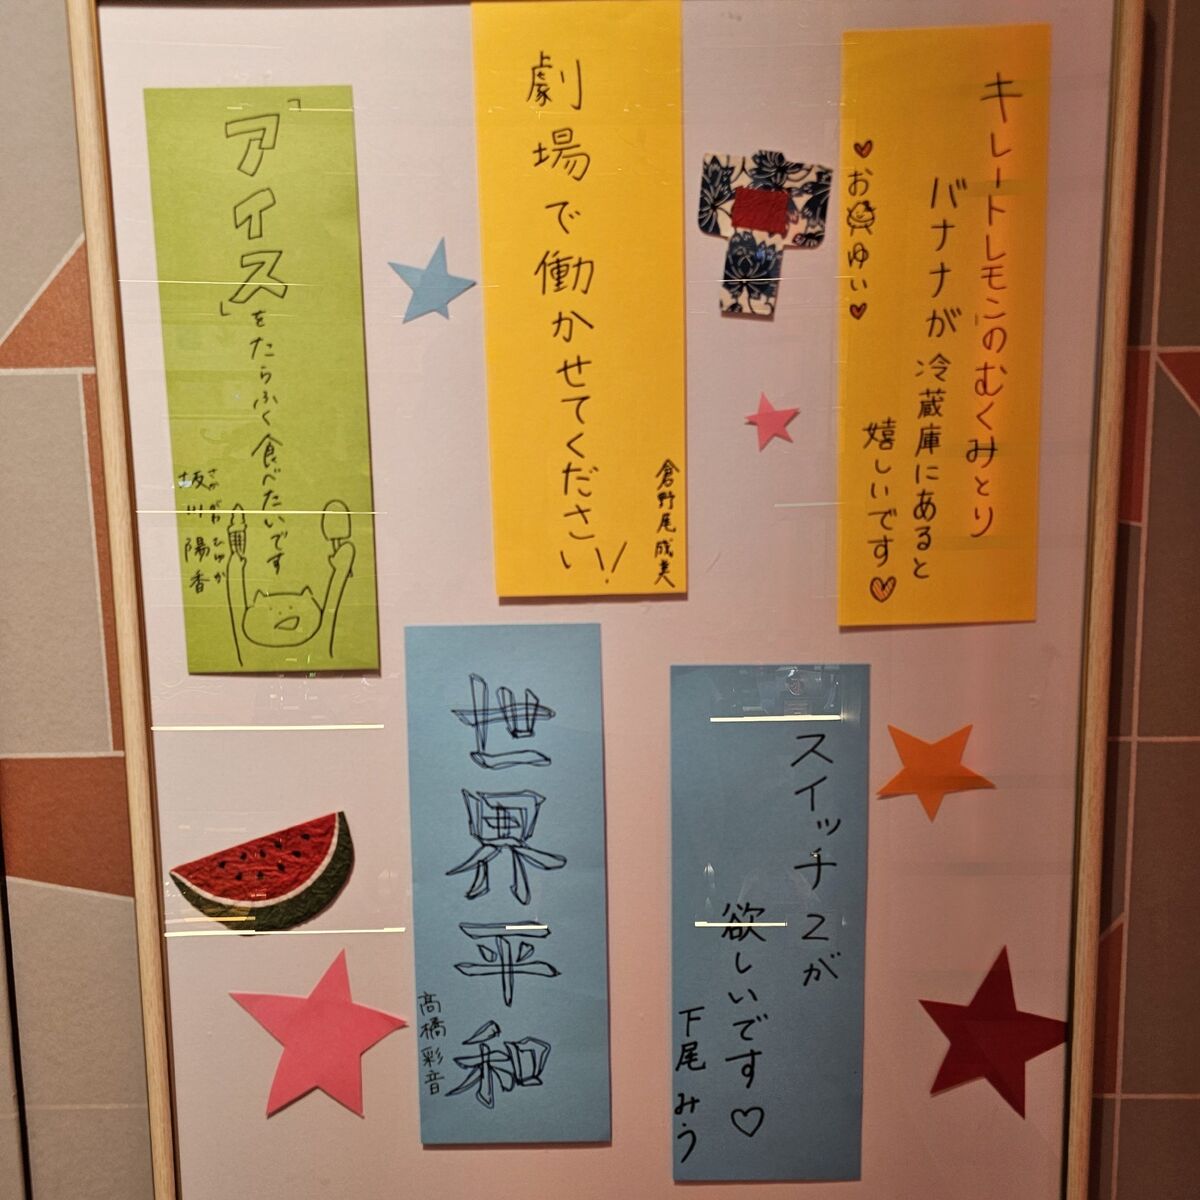 キレートレモンのむくみとり
バナナが冷蔵庫にあると
嬉しいです♡
♡おゆい♡
劇場で働かせてください!
倉野尾成美
「アイス」をたらふく食べたいです
さかがわひゅか
坂川陽香
スイッチ2が
欲しいです♡
下尾みう
世界平和
高橋彩音